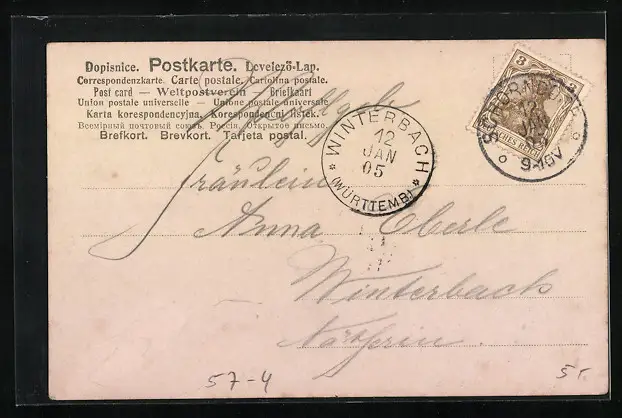 Dopisnice. Postkarte. Levelező-Lap.
Correspondenzkarte. Carte postale. Cartolina postale.
Post card — Weltpostverein — Briefkaart
Union postale universelle — Unione postale universale
Karta korespondencyjna. Korespondenční listek.
Всемірный почтовый союзъ. Россія. Открытое письмо.
Brefkort. Brevkort. Tarjeta postal.
WINTERBACH
12
JAN
05
(WÜRTTEMB)
3 3
12
JAN
9-10V
Fräulein
Anna Oberle
Winterbach
57-4
5,-